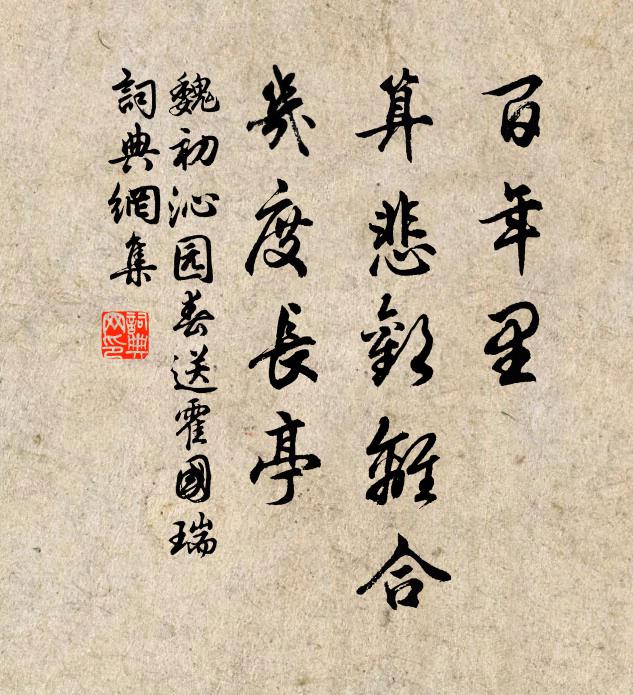 百年里
算悲歡離合
幾度長亭
魏初沁园春送霍國瑞
詞典網集
詞典網印